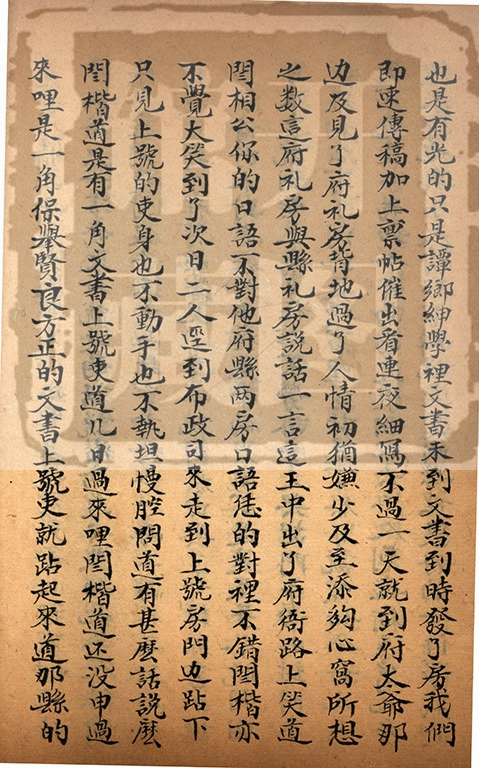 也是有光的只是譚鄉紳學裡文書未到文書到時發了房我們
即速傳稿加上禀帖催出看連夜細寫不過一天就到府太爺那
边及見了府礼房背地過了人情初猶嫌少及至添夠心窩所想
之数這府礼房與縣礼房說話一言這王中出了府衙路上笑道
閻相公你的口語不對他府縣兩房口語恁的對裡不錯閻楷亦
不覺大笑到了次日二人逕到布政司来走到上號房門边跕下
只見上號的吏身也不動手也不執坦慢腔問道有甚麽話說麽
閻楷道是有一角文書上號吏道几日過來哩閻楷道还没申過
來哩是一角保舉賢良方正的文書上號吏就跕起來道那縣的